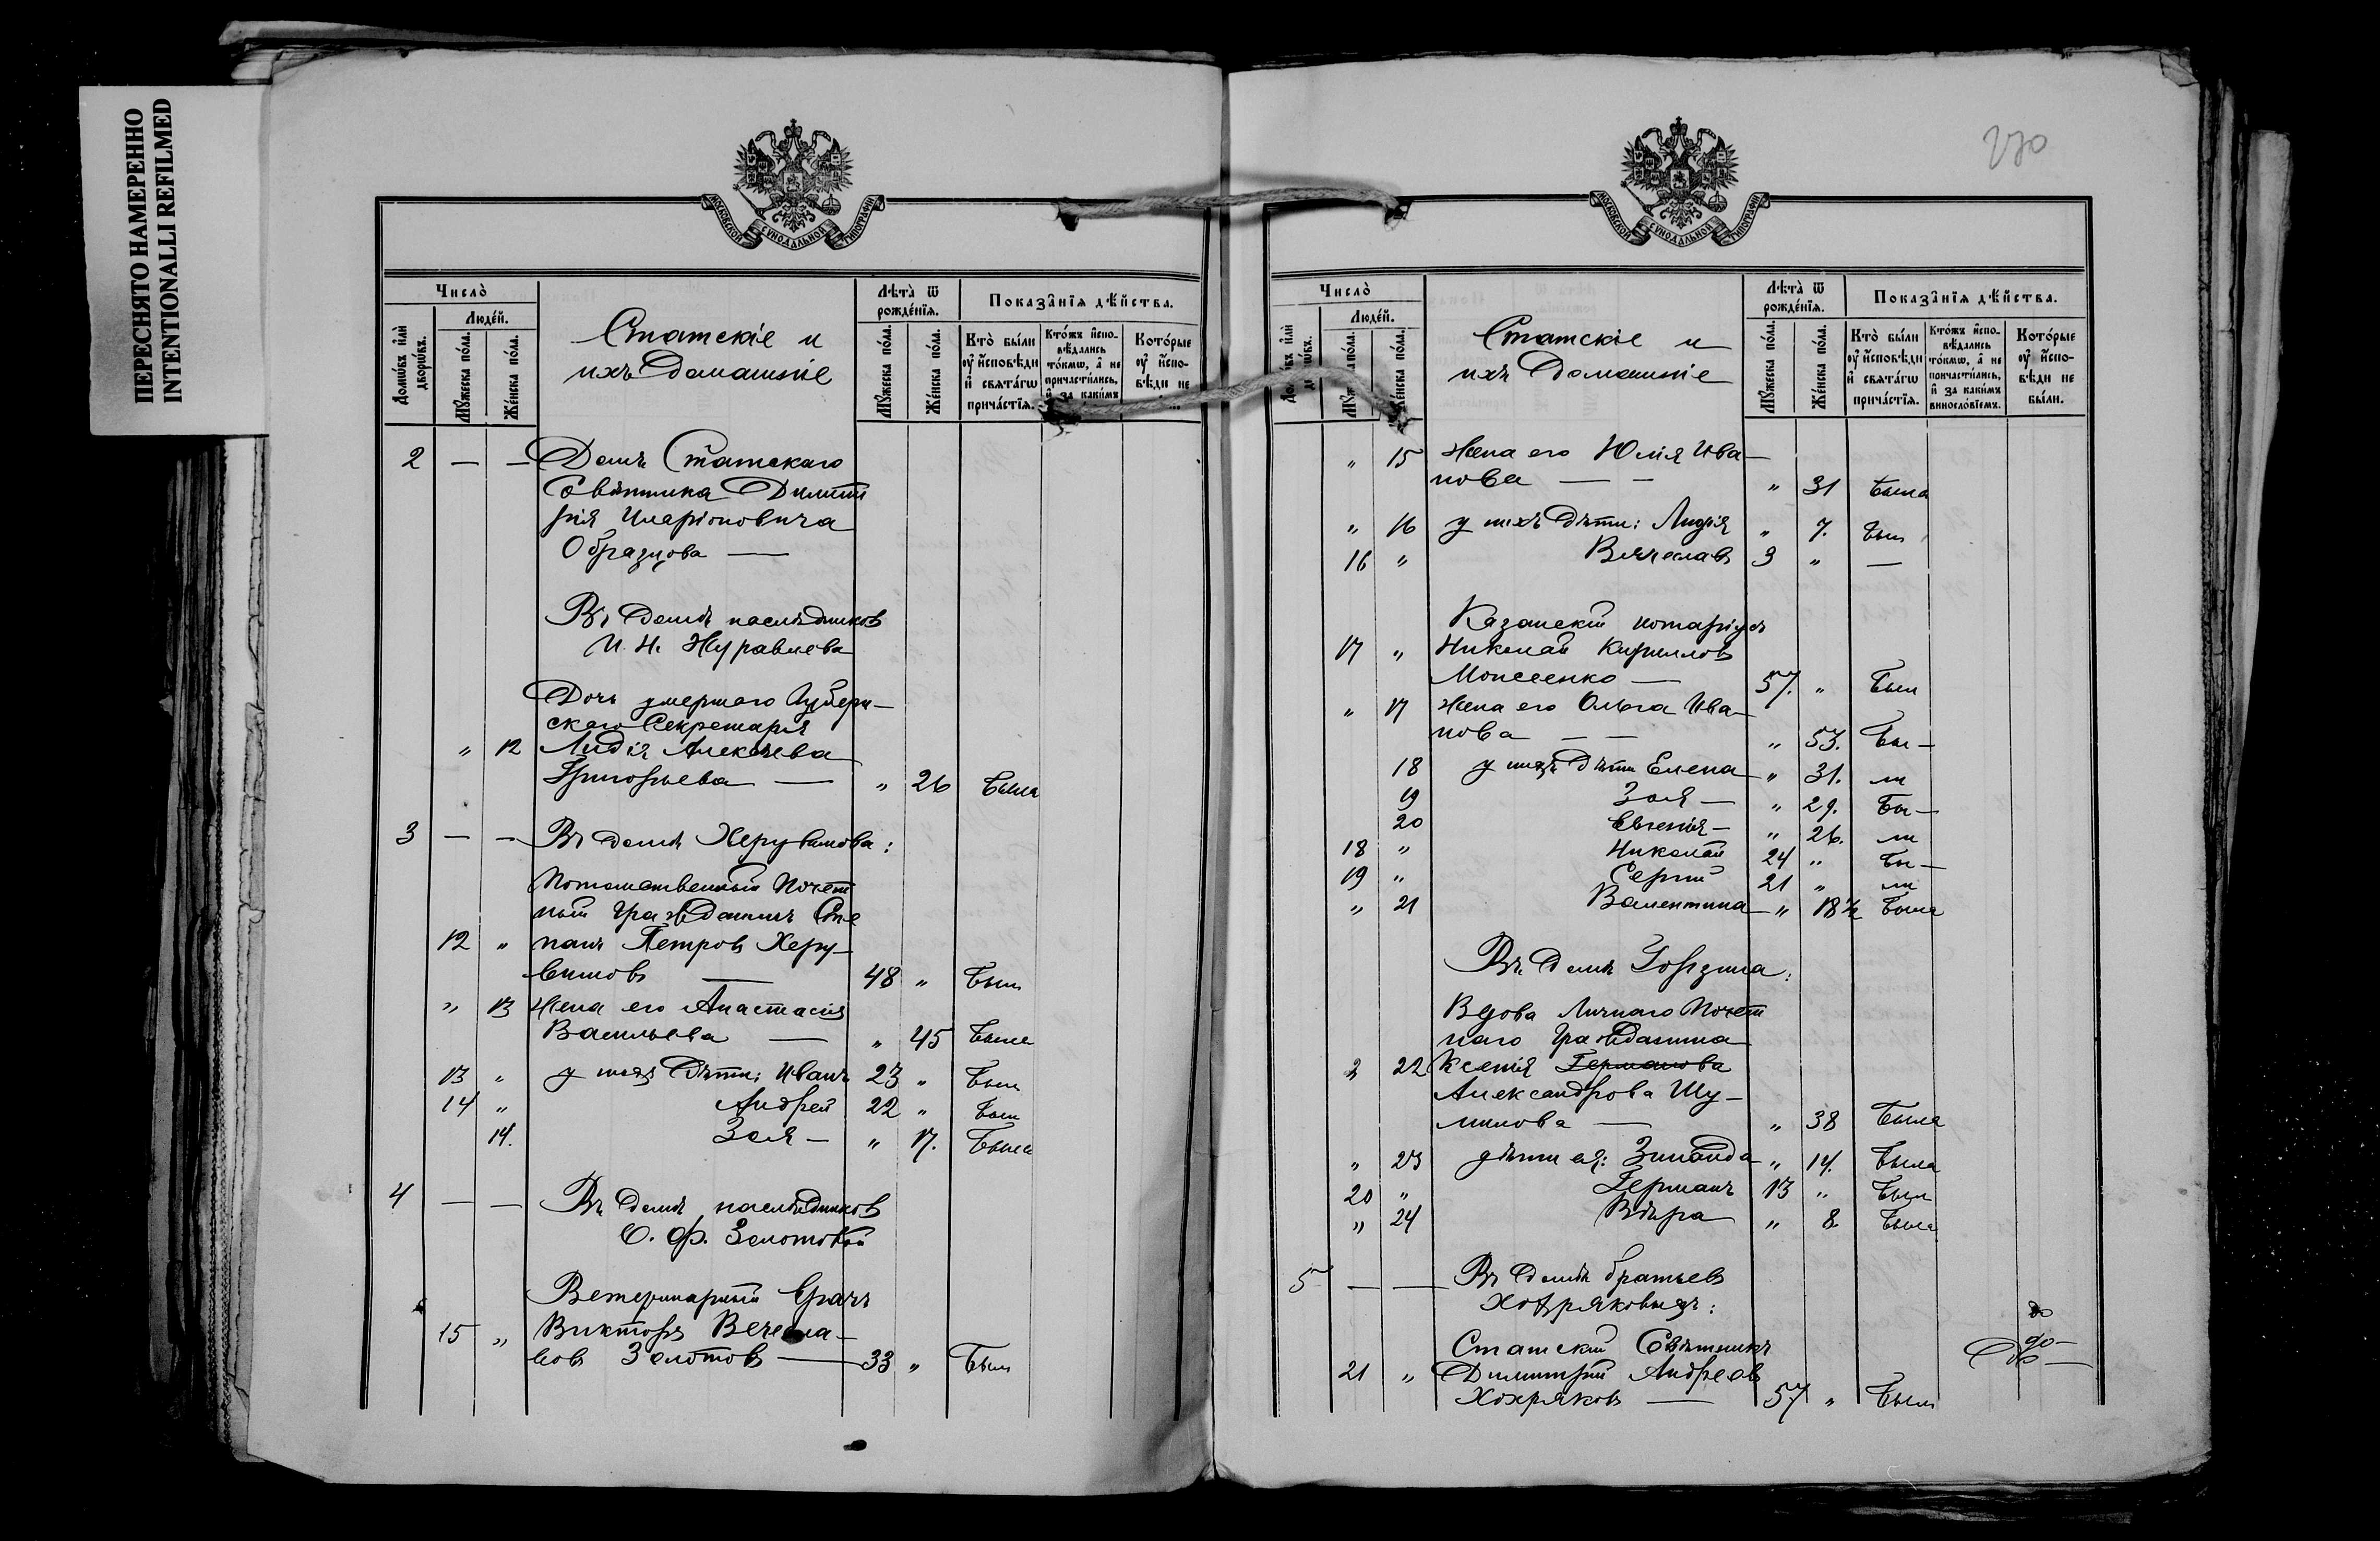 ПЕРЕСНЯТО НАМЕРЕННО
INTENTIONALLI REFILMED
МОСКОВСКОЙ СУНОДАЛЬНОЙ ТИПОГРАФІИ
Число̀
Домѡ́въ и҆лѝ дворѡ́въ.
Люде́й.
Мꙋ́жеска по́ла.
Же́нска по́ла.
Статскіе и
ихъ Домашніе
Лѣ́та ѿ рожде́нїѧ.
Мꙋ́жеска по́ла.
Же́нска по́ла.
Показа̑нїѧ дѣ́йства.
Кто̀ бы́ли ᲂу҆ и҆сповѣ́ди и҆ свѧта́гѡ прича́стїѧ.
Кто́жъ и҆спо-
вѣ́дались
то́кмѡ, а҆ не
причасти́лись,
и҆ за каки́мъ
Кото́рые ᲂу҆ и҆спо-
вѣ́ди не
2 — — Домъ Статскаго
Совѣтника Димит
рія Иларіоновича
Образцова —
Въ домѣ наслѣдниковъ
И. Н. Журавлева
Дочь умершаго Губерн-
скаго Секретаря
" 12 Лидія Алексѣева
Григорьева — " 26 была
3 — — Въ домѣ Херувимова:
Потомственный Почет
ный Гражданинъ Сте
12 " панъ Петровъ Херу-
вимовъ — 48 " былъ
" 13 Жена его Анастасія
Васильева — " 45 была
13 " у нихъ Дѣти: Иванъ 23 " былъ
14 " Андрей 22 " былъ
14. Зоя — " 17. была
4 — — Въ домѣ наслѣдниковъ
О. Ф. Золотовой
Ветеринарный Врачъ
15 " Викторъ Вечесла-
вовъ Золотовъ — 33 " былъ
270
МОСКОВСКОЙ СУНОДАЛЬНОЙ ТИПОГРАФІИ
Число̀
Домѡ́въ и҆лѝ
Люде́й.
Мꙋ́жеска по́ла.
Же́нска по́ла.
Статскіе и
ихъ Домашніе
Лѣ́та ѿ рожде́нїѧ.
Мꙋ́жеска по́ла.
Же́нска по́ла.
Показа̑нїѧ дѣ́йства.
Кто̀ бы́ли ᲂу҆ и҆сповѣ́ди и҆ свѧта́гѡ прича́стїѧ.
Кто́жъ и҆спо-
вѣ́дались
то́кмѡ, а҆ не
причасти́лись,
и҆ за каки́мъ
винослѡ́вїемъ.
Кото́рые ᲂу҆ и҆спо-
вѣ́ди не
бы́ли.
" 15 Жена его Юлія Ива-
нова — — " 31 была
" 16 у нихъ Дѣти: Лидія " 7. был
16 " Вячеславъ 3 " —
Казанскій нотаріусъ
17 " Николай Кирилловъ
Моисеенко — 57. " былъ
" 17 Жена его Ольга Ива-
нова — — " 53. бы-
18 у нихъ дѣти Елена " 31. ли
19 Зоя — " 29. бы-
20 Евгенія — " 26. ли
18 " Николай 24 " бы-
19 " Сергій 21 " ли
" 21 Валентина " 18½ была
Въ домѣ Зорзина:
Вдова Личнаго Почет
наго Гражданина
" 22 Ксенія Германова
Александрова Шу-
милова — " 38 была
" 23 дѣти ея: Зинаида " 14. была
20 " Германъ 13 " былъ
" 24 Вѣра " 8 была
5 — — Въ домѣ братьевъ
Хохряковыхъ:
Статскій Совѣтникъ
21 " Димитрій Андреевъ
Хохряковъ — 57 " былъ